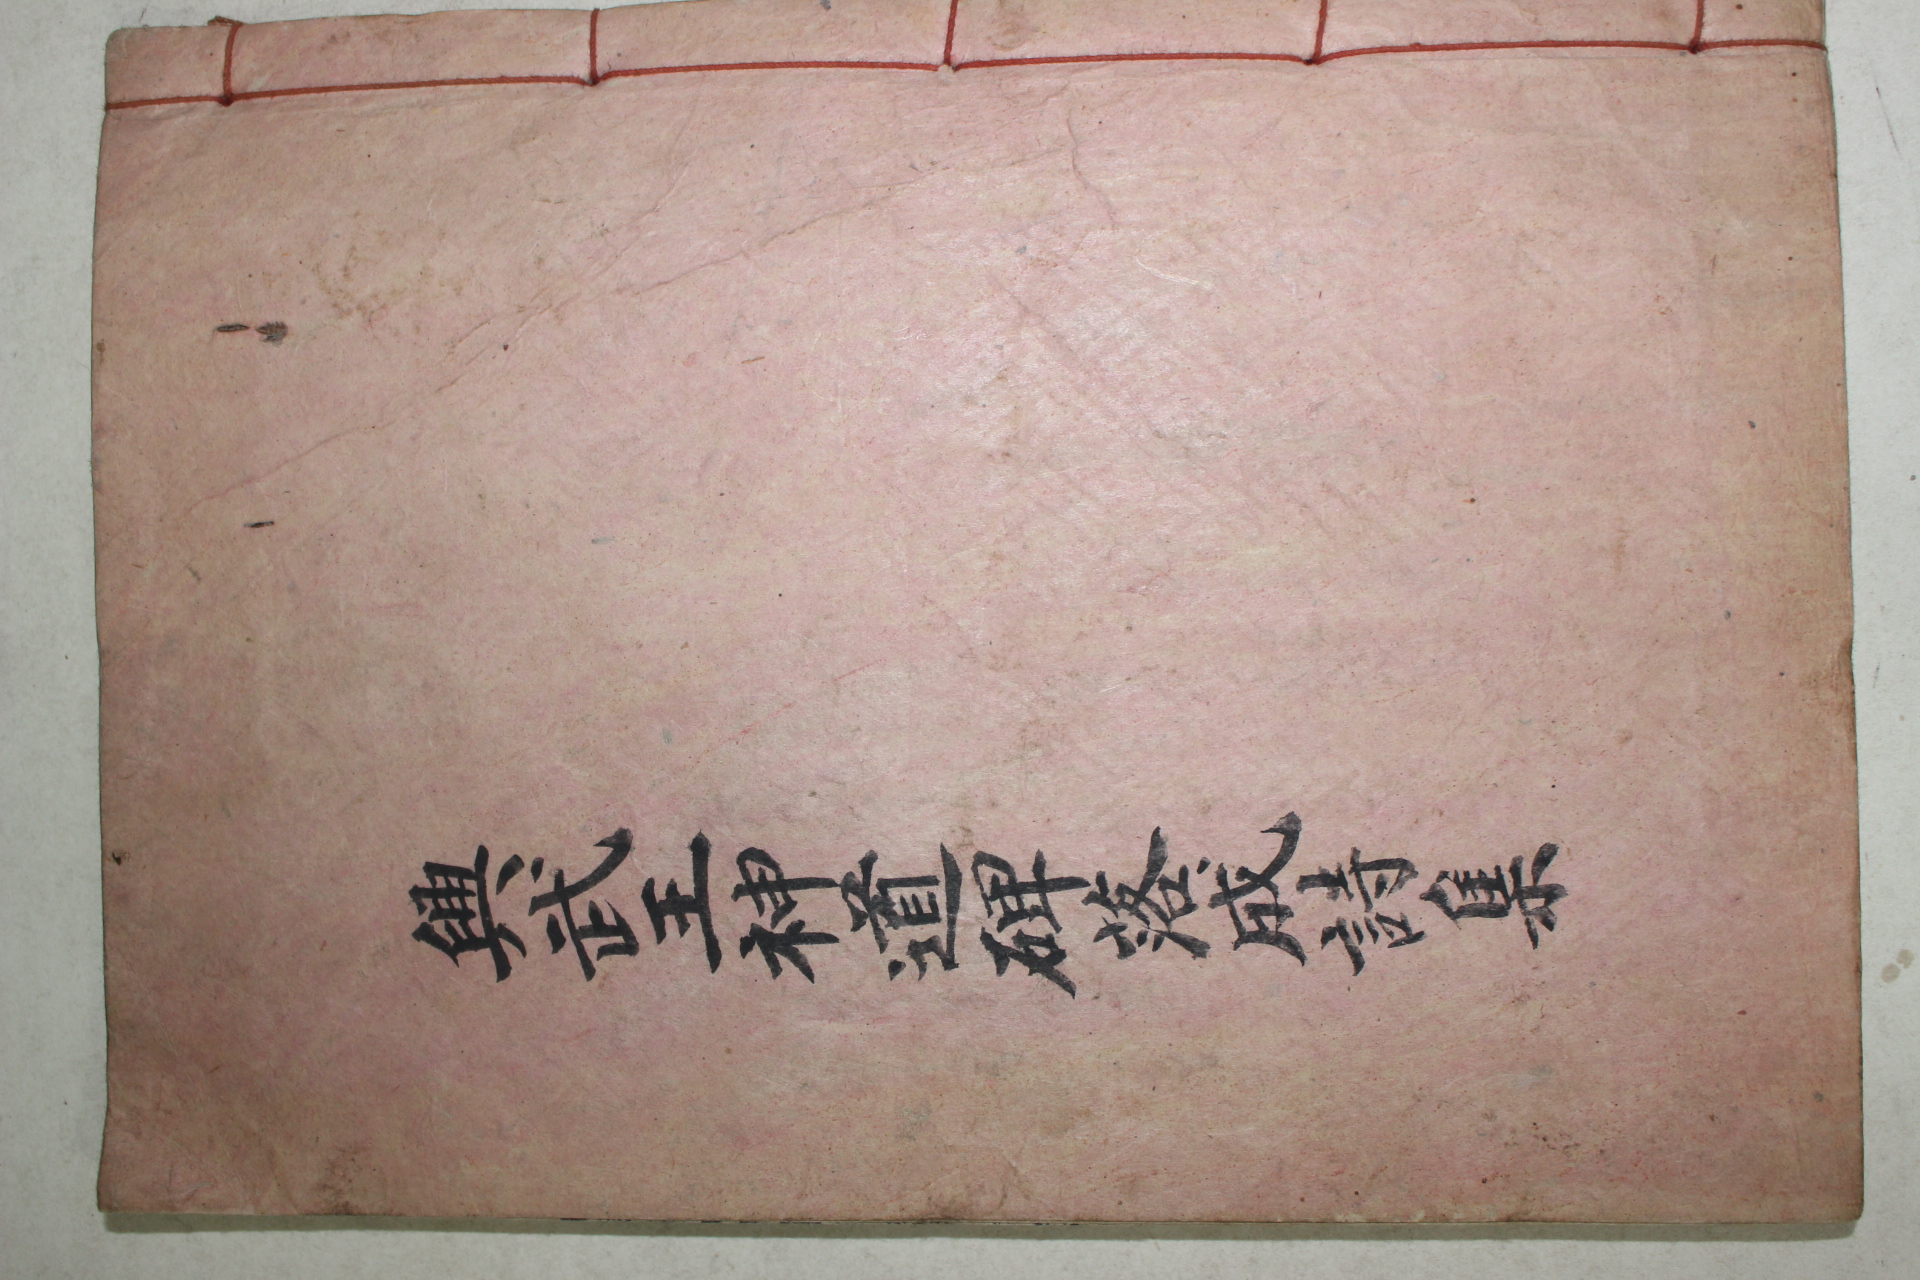 興武王神道碑落成詩集